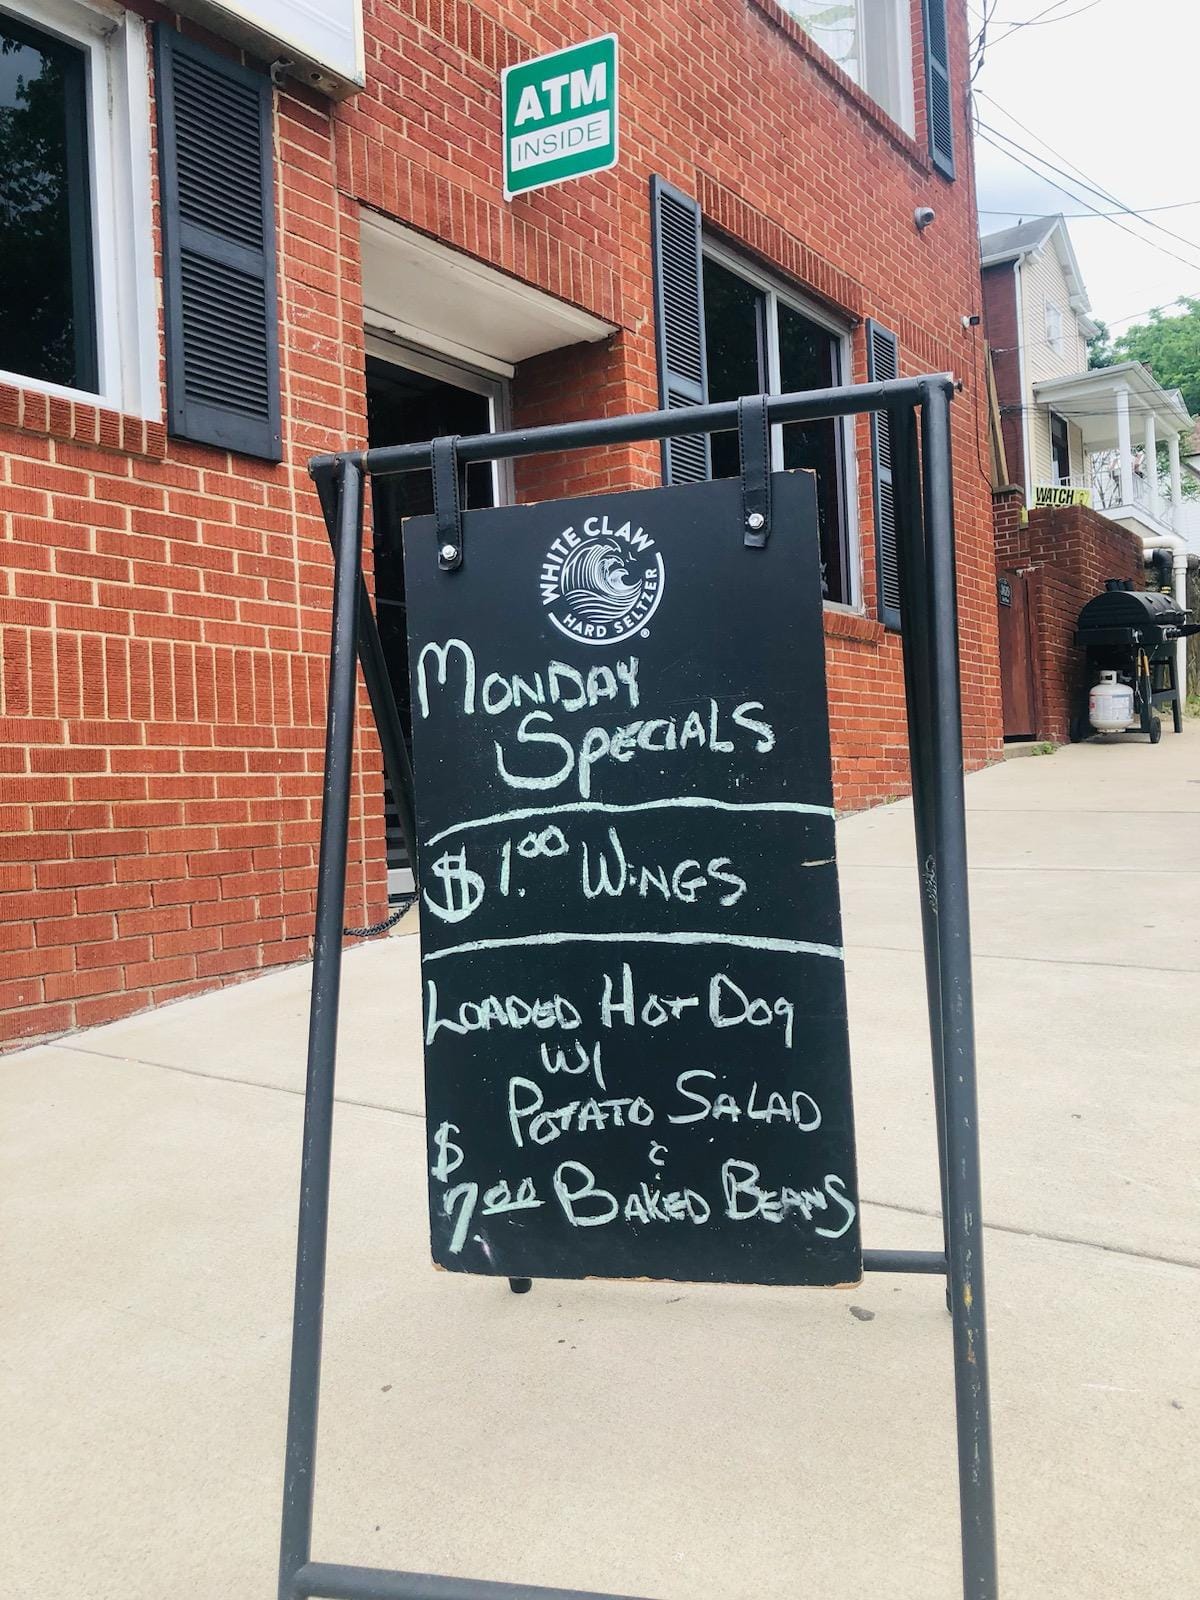 ATM
INSIDE
WATCH
WHITE CLAW
HARD SELTZER
®
MONDAY
SPECIALS
$1.00 WINGS
LOADED HOT DOG
W/
POTATO SALAD
$ &
7.00 BAKED BEANS